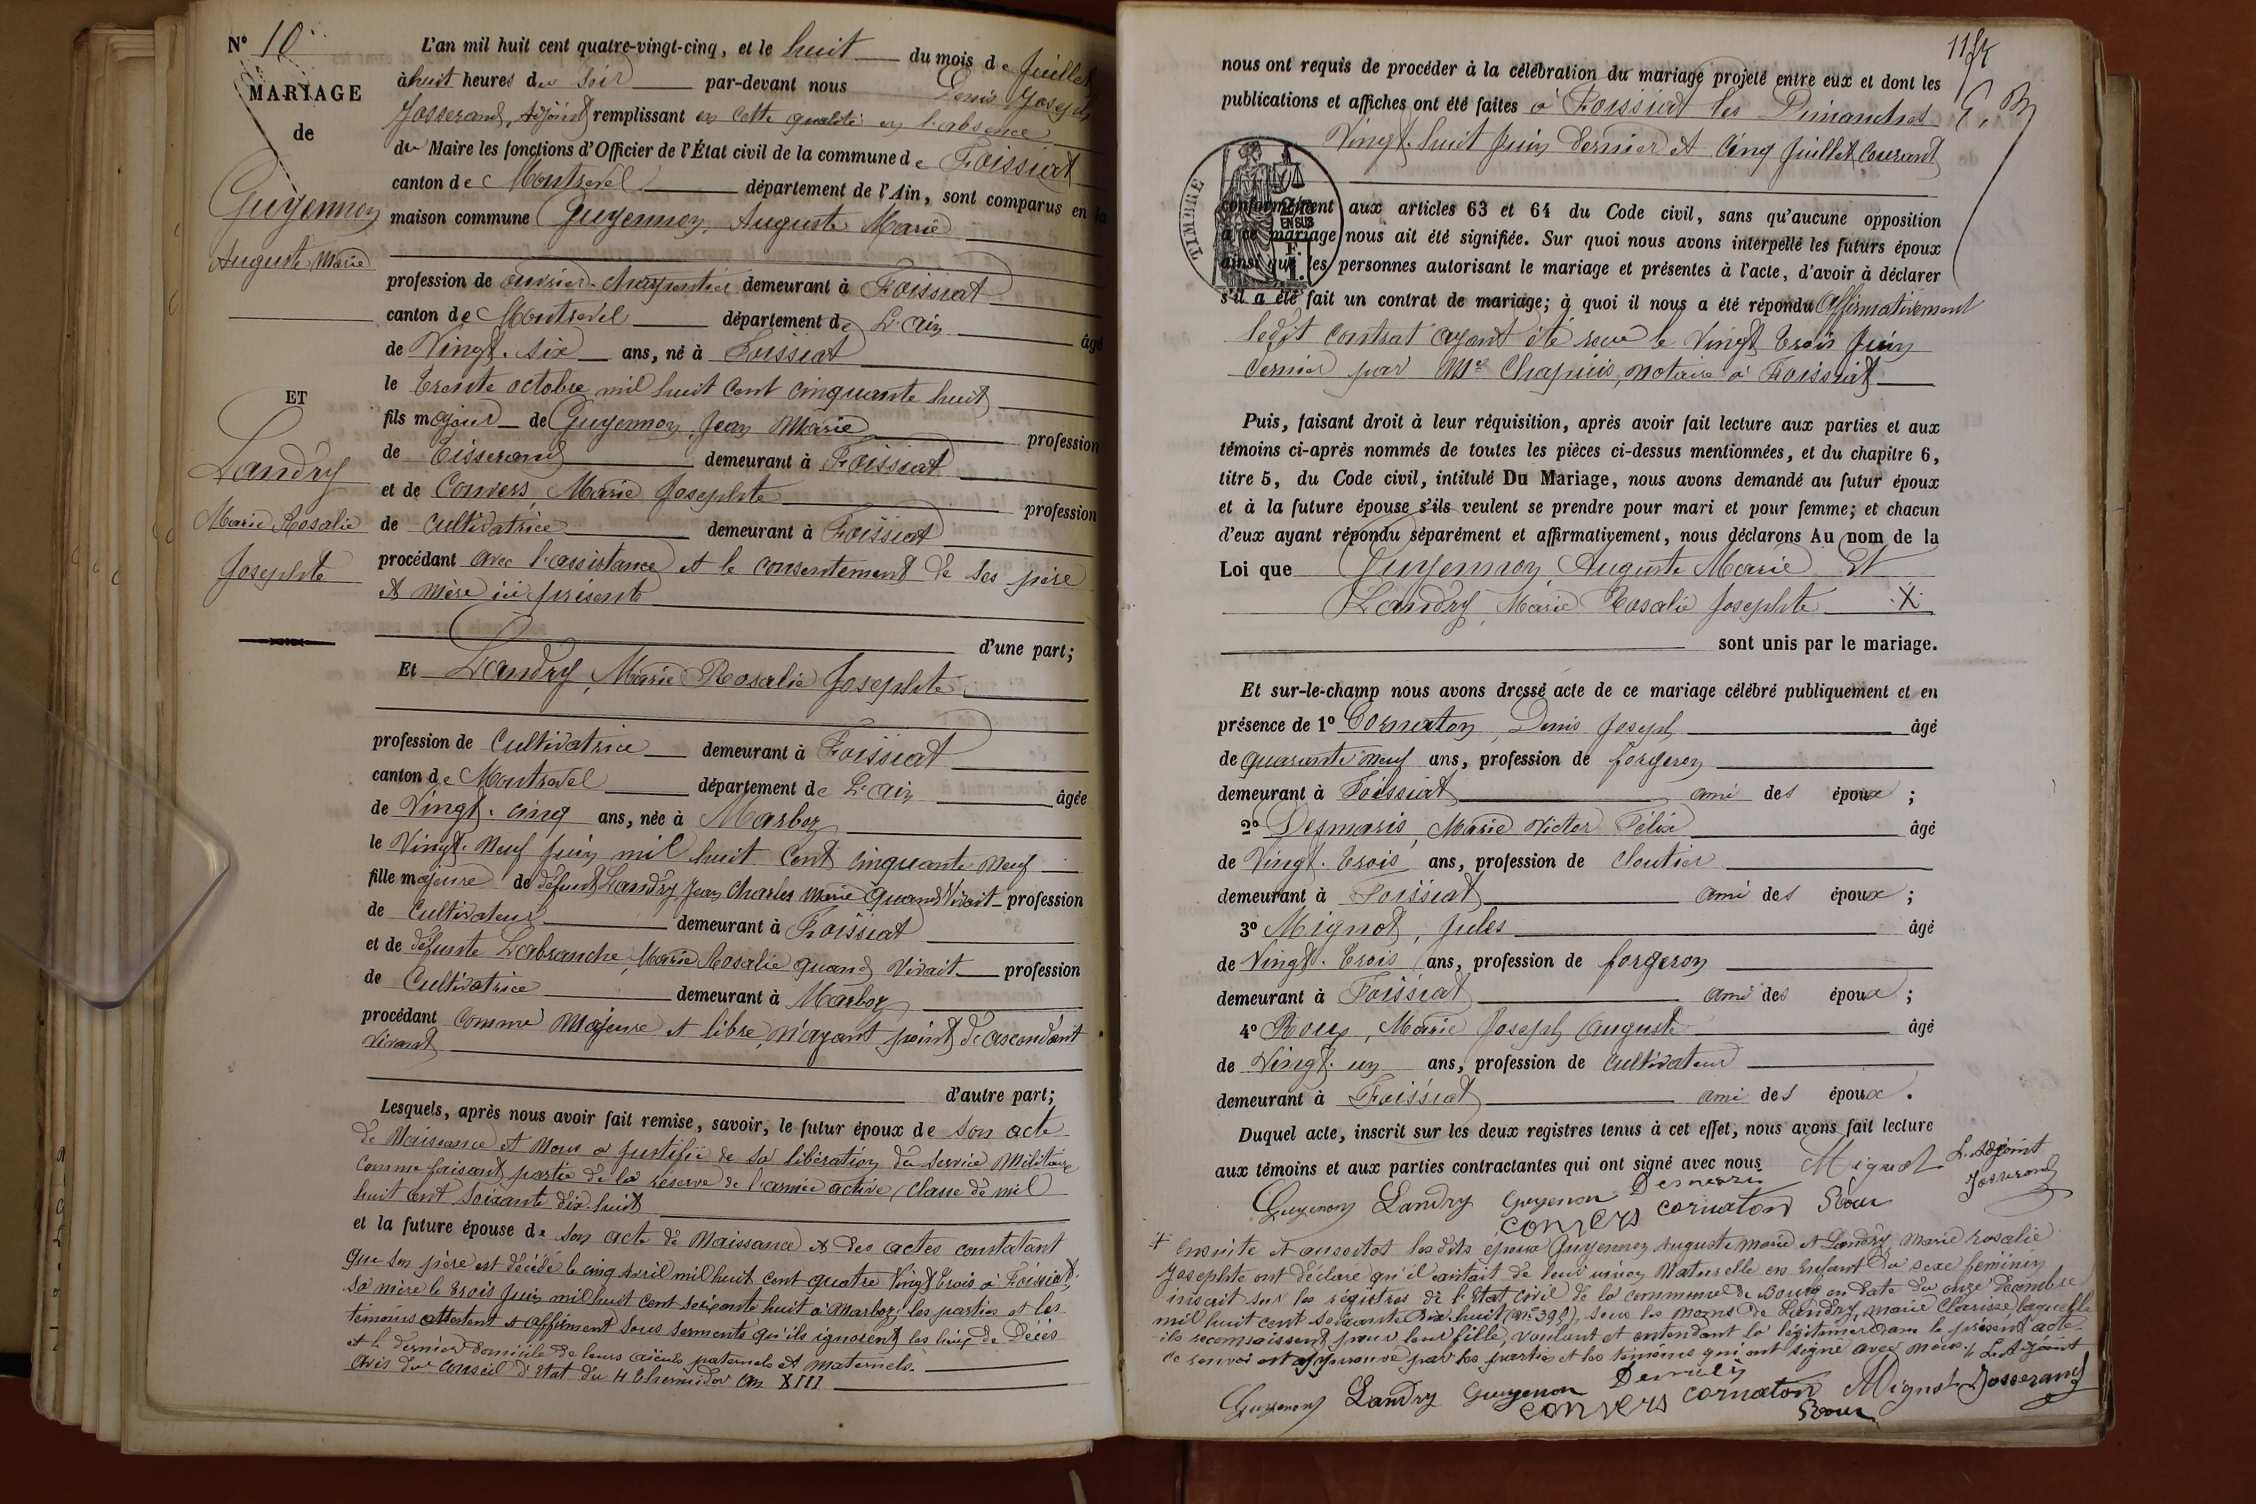 N° 10
MARIAGE
de
Guyennon
Auguste Marie
ET
Landry
Marie Rosalie
Josephte
L'an mil huit cent quatre-vingt-cinq, et le huit du mois de Juillet
à huit heures du soir par-devant nous Denis Joseph
Josserand, Adjoint remplissant en cette qualité en l'absence
du Maire les fonctions d'Officier de l'État civil de la commune de Foissiat
canton de Montrevel département de l'Ain, sont comparus en la
maison commune Guyennon, Auguste Marie
profession de ouvrier-charpentier demeurant à Foissiat
canton de Montrevel département de L'Ain âgé
de Vingt-six ans, né à Foissiat
le trente octobre mil huit cent cinquante huit
fils majeur de Guyennon, Jean Marie profession
de tisserand demeurant à Foissiat
et de Convers, Marie Josephte profession
de cultivatrice demeurant à Foissiat
procédant avec l'assistance et le consentement de ses père
et mère ici présents
d'une part;
Et Landry, Marie Rosalie Josephte
profession de Cultivatrice demeurant à Foissiat
canton de Montrevel département de L'Ain âgée
de Vingt-cinq ans, née à Marboz
le Vingt-neuf juin mil huit cent cinquante neuf
fille majeure de défunt Landry Jean Charles Marie quand vivait profession
de Cultivateur demeurant à Foissiat
et de défunte Labranche, Marie Rosalie quand vivait profession
de Cultivatrice demeurant à Marboz
procédant comme majeure et libre, n'ayant point d'ascendant
vivant
d'autre part;
Lesquels, après nous avoir fait remise, savoir, le futur époux de son acte
de naissance et nous a justifié de sa libération du service militaire
comme faisant partie de la réserve de l'armée active, classe de mil
huit cent soixante dix-huit
et la future épouse de son acte de naissance et des actes constatant
que son père est décédé le cinq avril mil huit cent quatre vingt trois à Foissiat,
sa mère le trois juin mil huit cent soixante huit à Marboz; les parties et les
témoins attestent et affirment sous serments qu'ils ignorent les lieux de décès
et le dernier domicile de leurs aïeuls paternels et maternels.
Avis du conseil d'Etat du 4 thermidor an XIII
115
nous ont requis de procéder à la célébration du mariage projeté entre eux et dont les
publications et affiches ont été faites à Foissiat les Dimanches
Vingt-huit Juin dernier et cinq Juillet courant
TIMBRE
2/10
EN SUS
conformément aux articles 63 et 64 du Code civil, sans qu'aucune opposition
à ce mariage nous ait été signifiée. Sur quoi nous avons interpellé les futurs époux
ainsi que les personnes autorisant le mariage et présentes à l'acte, d'avoir à déclarer
s'il a été fait un contrat de mariage; à quoi il nous a été répondu affirmativement
ledit contrat ayant été reçu le vingt trois juin
dernier par Me Chapuis, notaire à Foissiat
Puis, faisant droit à leur réquisition, après avoir fait lecture aux parties et aux
témoins ci-après nommés de toutes les pièces ci-dessus mentionnées, et du chapitre 6,
titre 5, du Code civil, intitulé Du Mariage, nous avons demandé au futur époux
et à la future épouse s'ils veulent se prendre pour mari et pour femme; et chacun
d'eux ayant répondu séparément et affirmativement, nous déclarons Au nom de la
Loi que Guyennon, Auguste Marie Et
Landry, Marie Rosalie Josephte X
sont unis par le mariage.
Et sur-le-champ nous avons dressé acte de ce mariage célébré publiquement et en
présence de 1° Cornaton, Denis Joseph âgé
de quarante neuf ans, profession de forgeron
demeurant à Foissiat ami des époux ;
2° Desmaris, Marie Victor Félix âgé
de Vingt-trois ans, profession de cloutier
demeurant à Foissiat ami des époux ;
3° Mignot, Jules âgé
de Vingt-trois ans, profession de forgeron
demeurant à Foissiat ami des époux ;
4° Roux, Marie Joseph Auguste âgé
de Vingt-un ans, profession de cultivateur
demeurant à Foissiat ami des époux .
Duquel acte, inscrit sur les deux registres tenus à cet effet, nous avons fait lecture
aux témoins et aux parties contractantes qui ont signé avec nous Mignot L'Adjoint
Josserand
Guyenon Landry Guyenon Desmaris
convers cornaton Roux
+ Ensuite et aussitôt lesdits époux Guyennon Auguste Marie et Landry Marie rosalie
Josephte ont déclaré qu'il existait de leur union naturelle un enfant du sexe féminin
inscrit sur les registres de l'Etat civil de la commune de Bourg en date du onze décembre
mil huit cent soixante dix-huit (n° 395), sous les noms de Landry, Marie Clarisse laquelle
ils reconnaissent pour leur fille, voulant et entendant la légitimer dans le présent acte.
ce renvoi est approuvé par les parties et les témoins qui ont signé avec nous. L'Adjoint
Guyenon Landry Guyenon
convers cornaton Mignot Josserand
Roux